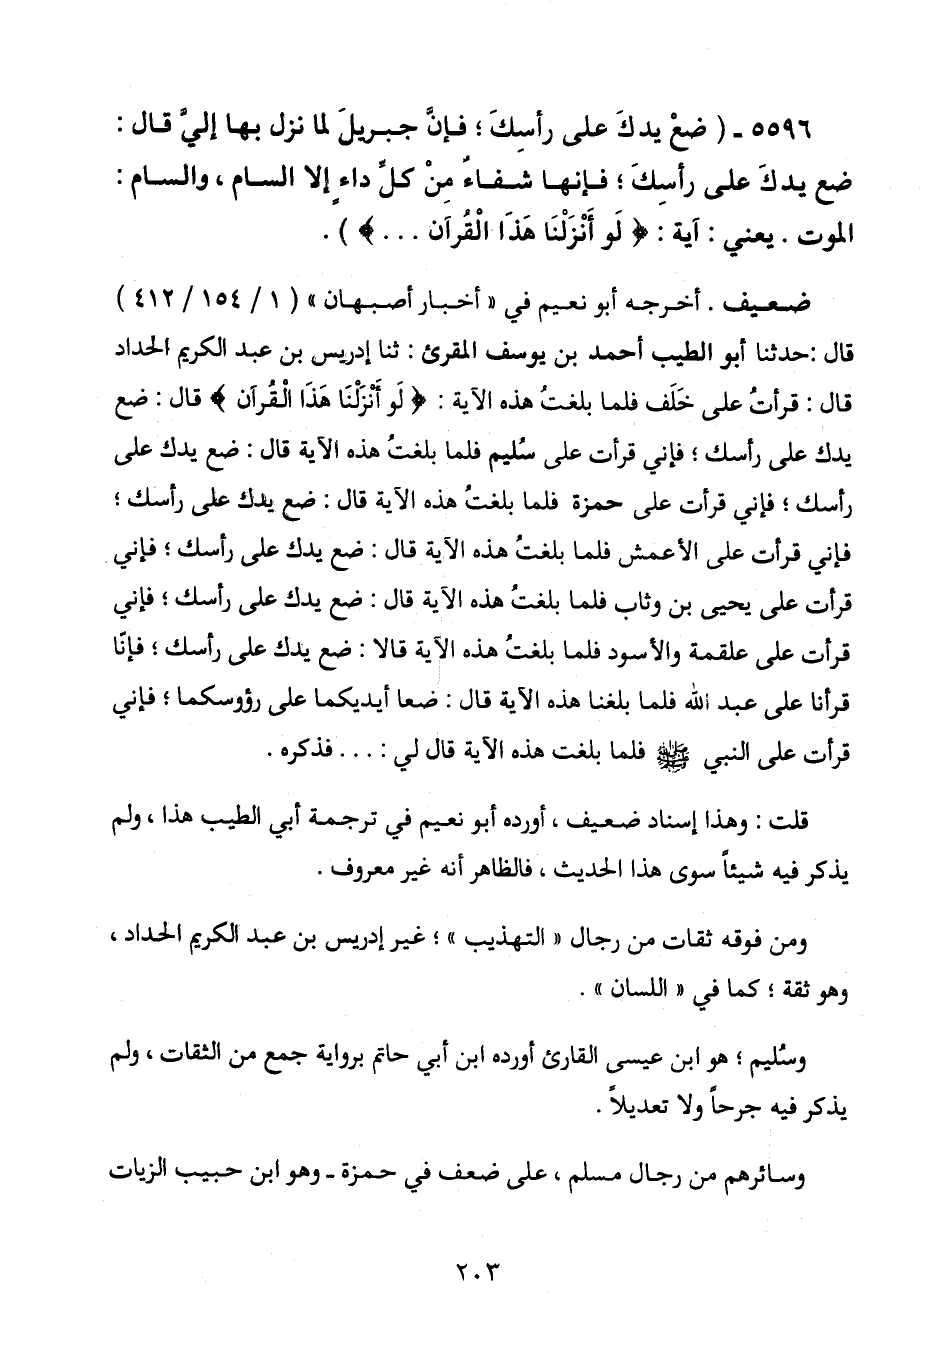 ٥٥٩٦ ـ ( ضعْ يدكَ على رأسِكَ ؛ فإنَّ جبريلَ لما نزل بها إليَّ قال :
ضع يدكَ على رأسِكَ ؛ فإنها شفاءٌ مِنْ كلِّ داءٍ إلا السام ، والسام :
الموت . يعني : آية : ﴿ لَو أَنْزَلْنَا هَذَا الْقُرآن . . . ﴾ ) .
ضعيف . أخرجه أبو نعيم في « أخبار أصبهان » ( ١ / ١٥٤ / ٤١٢ )
قال :حدثنا أبو الطيب أحمد بن يوسف المقرئ : ثنا إدريس بن عبد الكريم الحداد
قال : قرأتُ على خَلَف فلما بلغتُ هذه الآية : ﴿ لَو أَنْزَلْنَا هَذَا الْقُرآن ﴾ قال : ضع
يدك على رأسك ؛ فإني قرأت على سُليم فلما بلغتُ هذه الآية قال : ضع يدك على
رأسك ؛ فإني قرأت على حمزة فلما بلغتُ هذه الآية قال : ضع يدك على رأسك ؛
فإني قرأت على الأعمش فلما بلغتُ هذه الآية قال : ضع يدك على رأسك ؛ فإني
قرأت على يحيى بن وثاب فلما بلغتُ هذه الآية قال : ضع يدك على رأسك ؛ فإني
قرأت على علقمة والأسود فلما بلغتُ هذه الآية قالا : ضع يدك على رأسك ؛ فإنّا
قرأنا على عبد الله فلما بلغنا هذه الآية قال : ضعا أيديكما على رؤوسكما ؛ فإني
قرأت على النبي ﷺ فلما بلغت هذه الآية قال لي : . . . فذكره .
قلت : وهذا إسناد ضعيف ، أورده أبو نعيم في ترجمة أبي الطيب هذا ، ولم
يذكر فيه شيئاً سوى هذا الحديث ، فالظاهر أنه غير معروف .
ومن فوقه ثقات من رجال « التهذيب » ؛ غير إدريس بن عبد الكريم الحداد ،
وهو ثقة ؛ كما في « اللسان » .
وسُليم ؛ هو ابن عيسى القارئ أورده ابن أبي حاتم برواية جمع من الثقات ، ولم
يذكر فيه جرحاً ولا تعديلاً .
وسائرهم من رجال مسلم ، على ضعف في حمزة ـ وهو ابن حبيب الزيات
٢٠٣